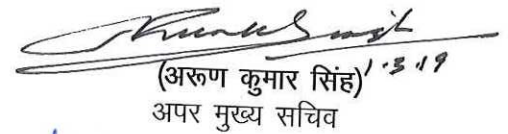 (अरूण कुमार सिंह) 1.3.19
अपर मुख्य सचिव